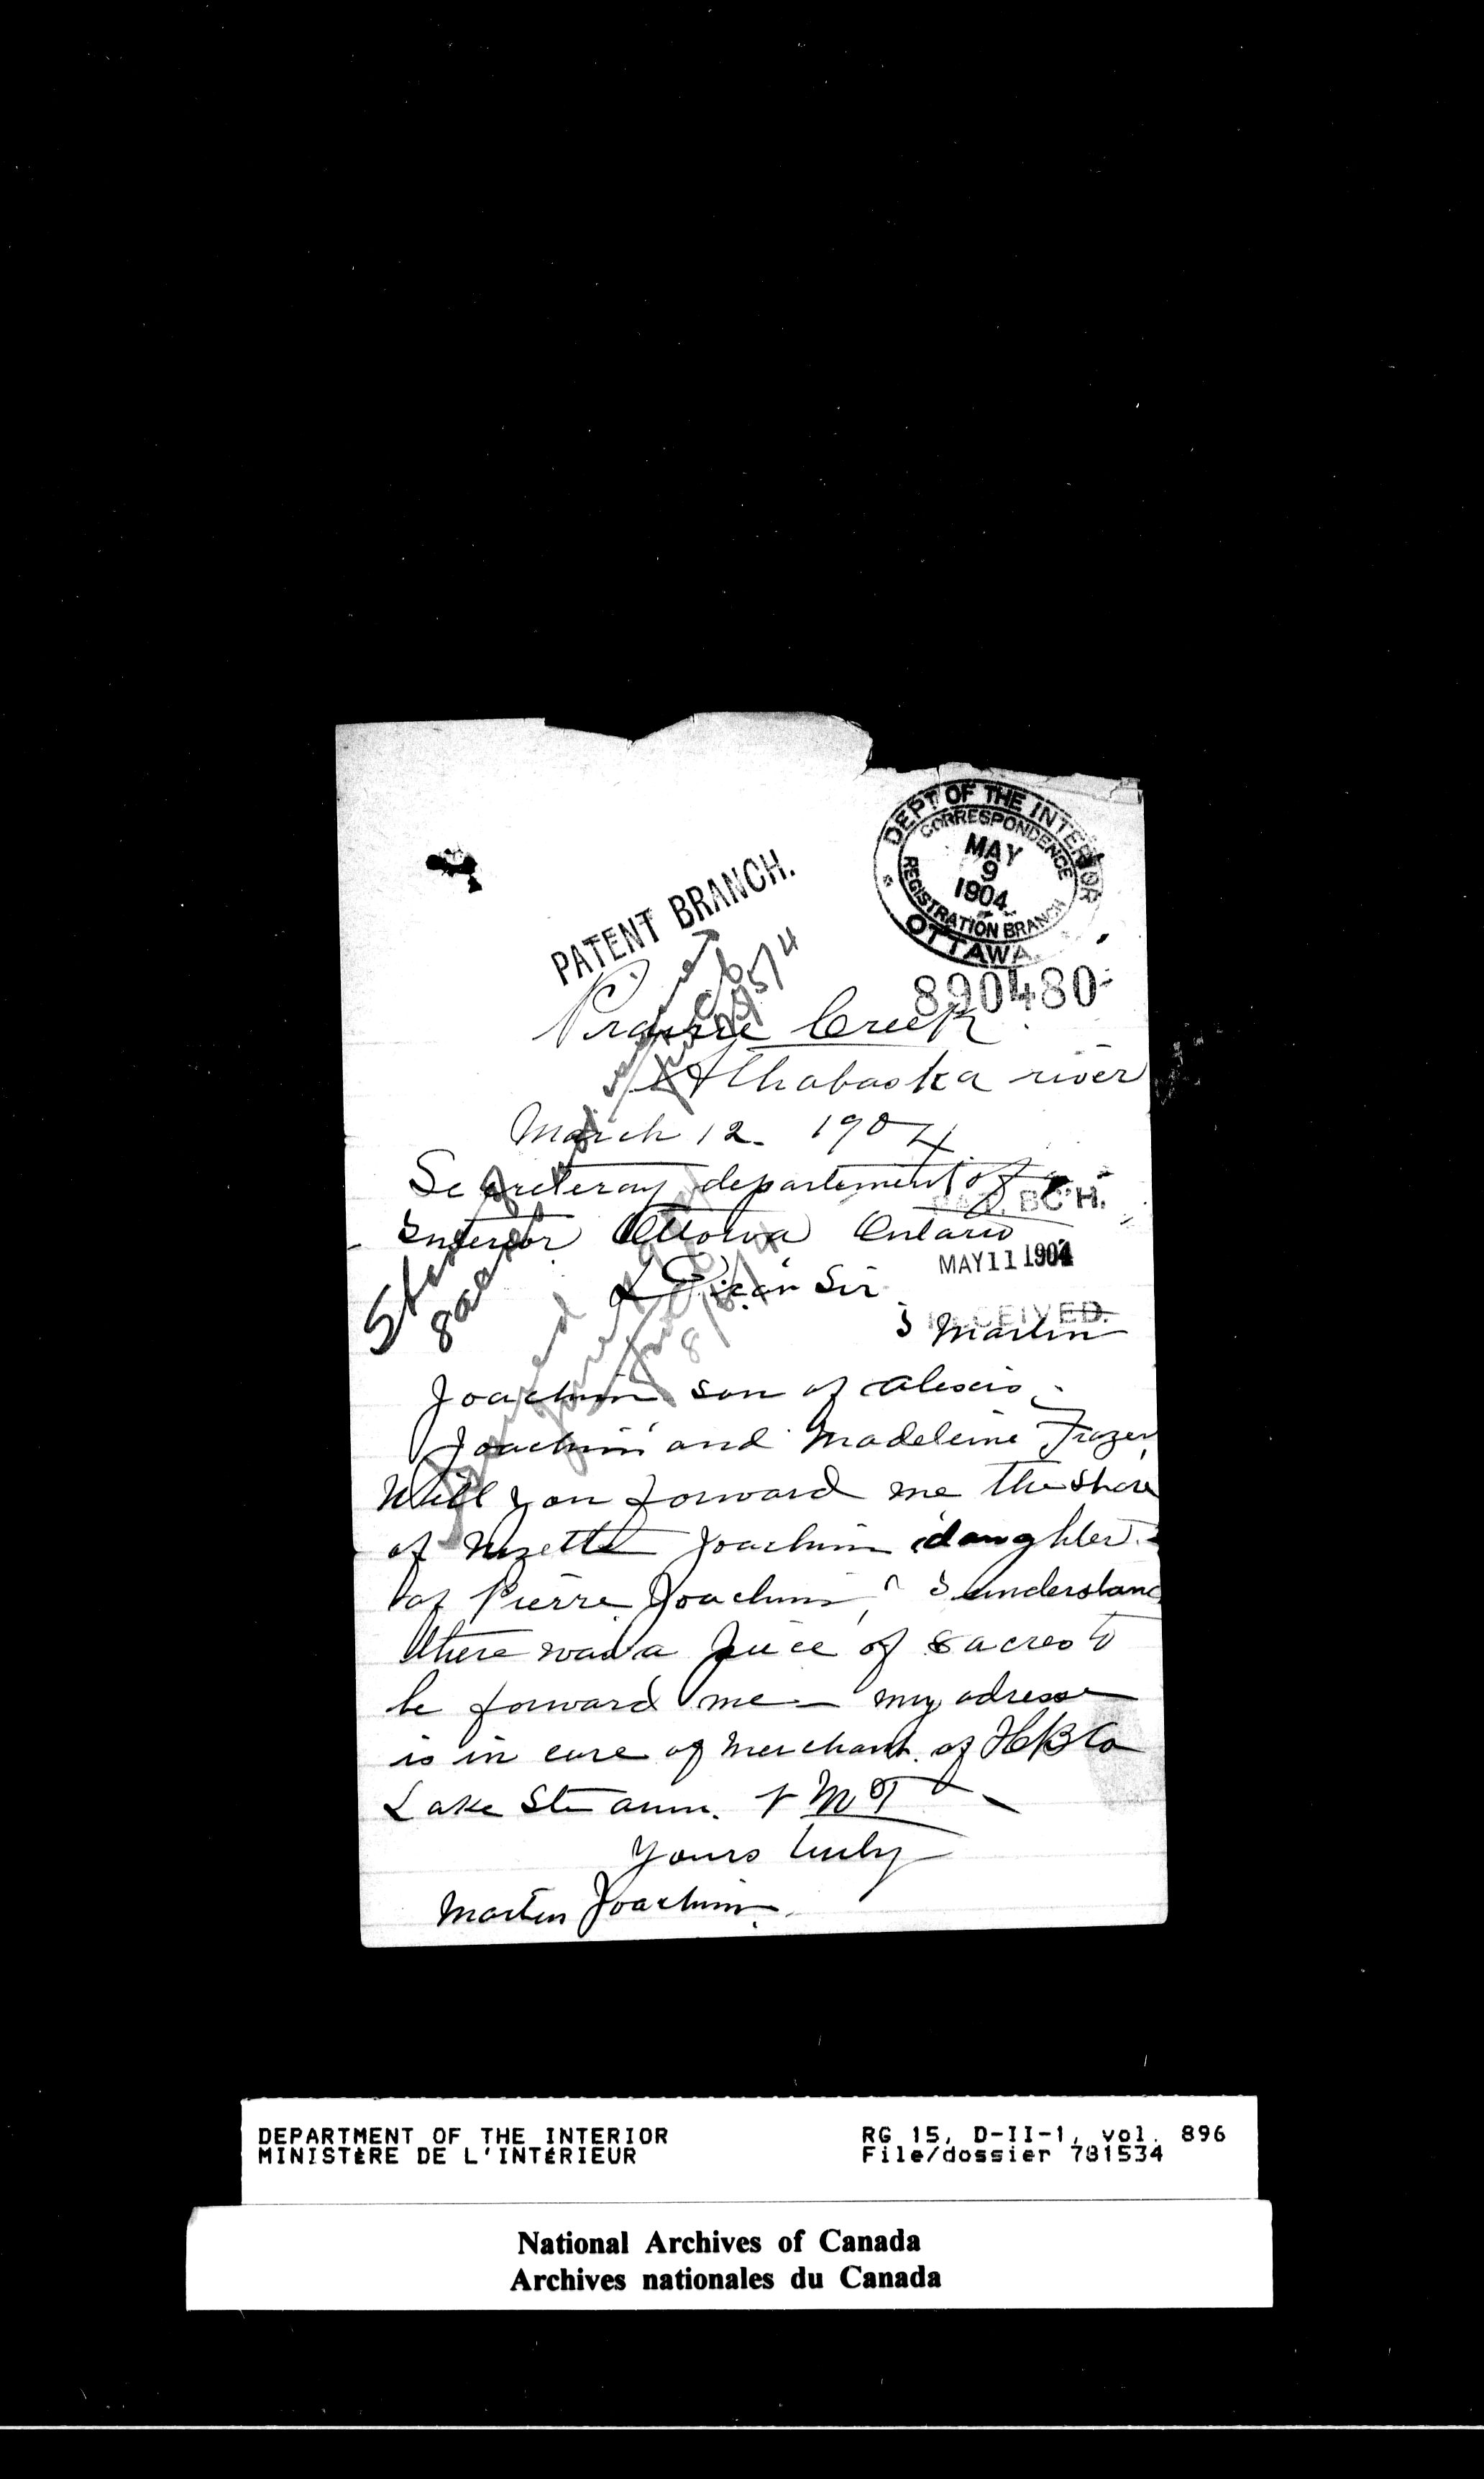 DEPT OF THE INTERIOR
CORRESPONDENCE
MAY
9
1904
REGISTRATION BRANCH
OTTAWA
PATENT BRANCH.
890480
Prairie Creek
Athabaska river
March 12. 1904
Secreteray departement of
Interior Ottowa Ontario
BC'H.
MAY 11 1904
RECEIVED.
Dear Sir
I Martin
Joachim son of Alexis
Joachim and Madeleine Frazer
Will you forward me the share
of Nozette Joachim daughter
of Pierre Joachim, I understand
there was a piece of 8 acres to
be forward me - my adresse
is in care of Merchant of HBCo
Lake Ste anne.
Yours truly
Martin Joachim.
DEPARTMENT OF THE INTERIOR
MINISTÈRE DE L'INTÉRIEUR
RG 15, D-II-1, vol. 896
File/dossier 781534
National Archives of Canada
Archives nationales du Canada